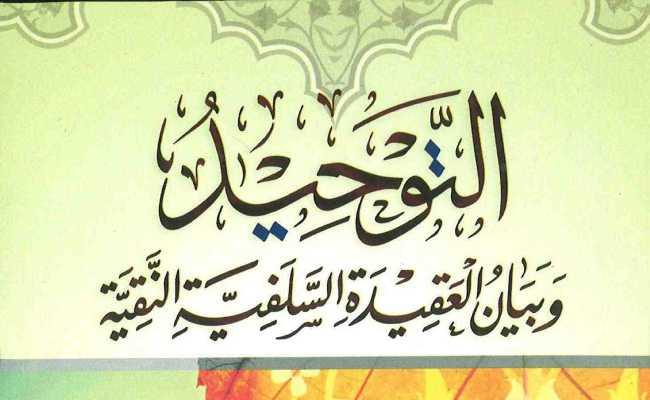 التَّوْحِيدُ
وَبَيَانُ الْعَقِيدَةِ السَّلَفِيَّةِ النَّقِيَّةِ